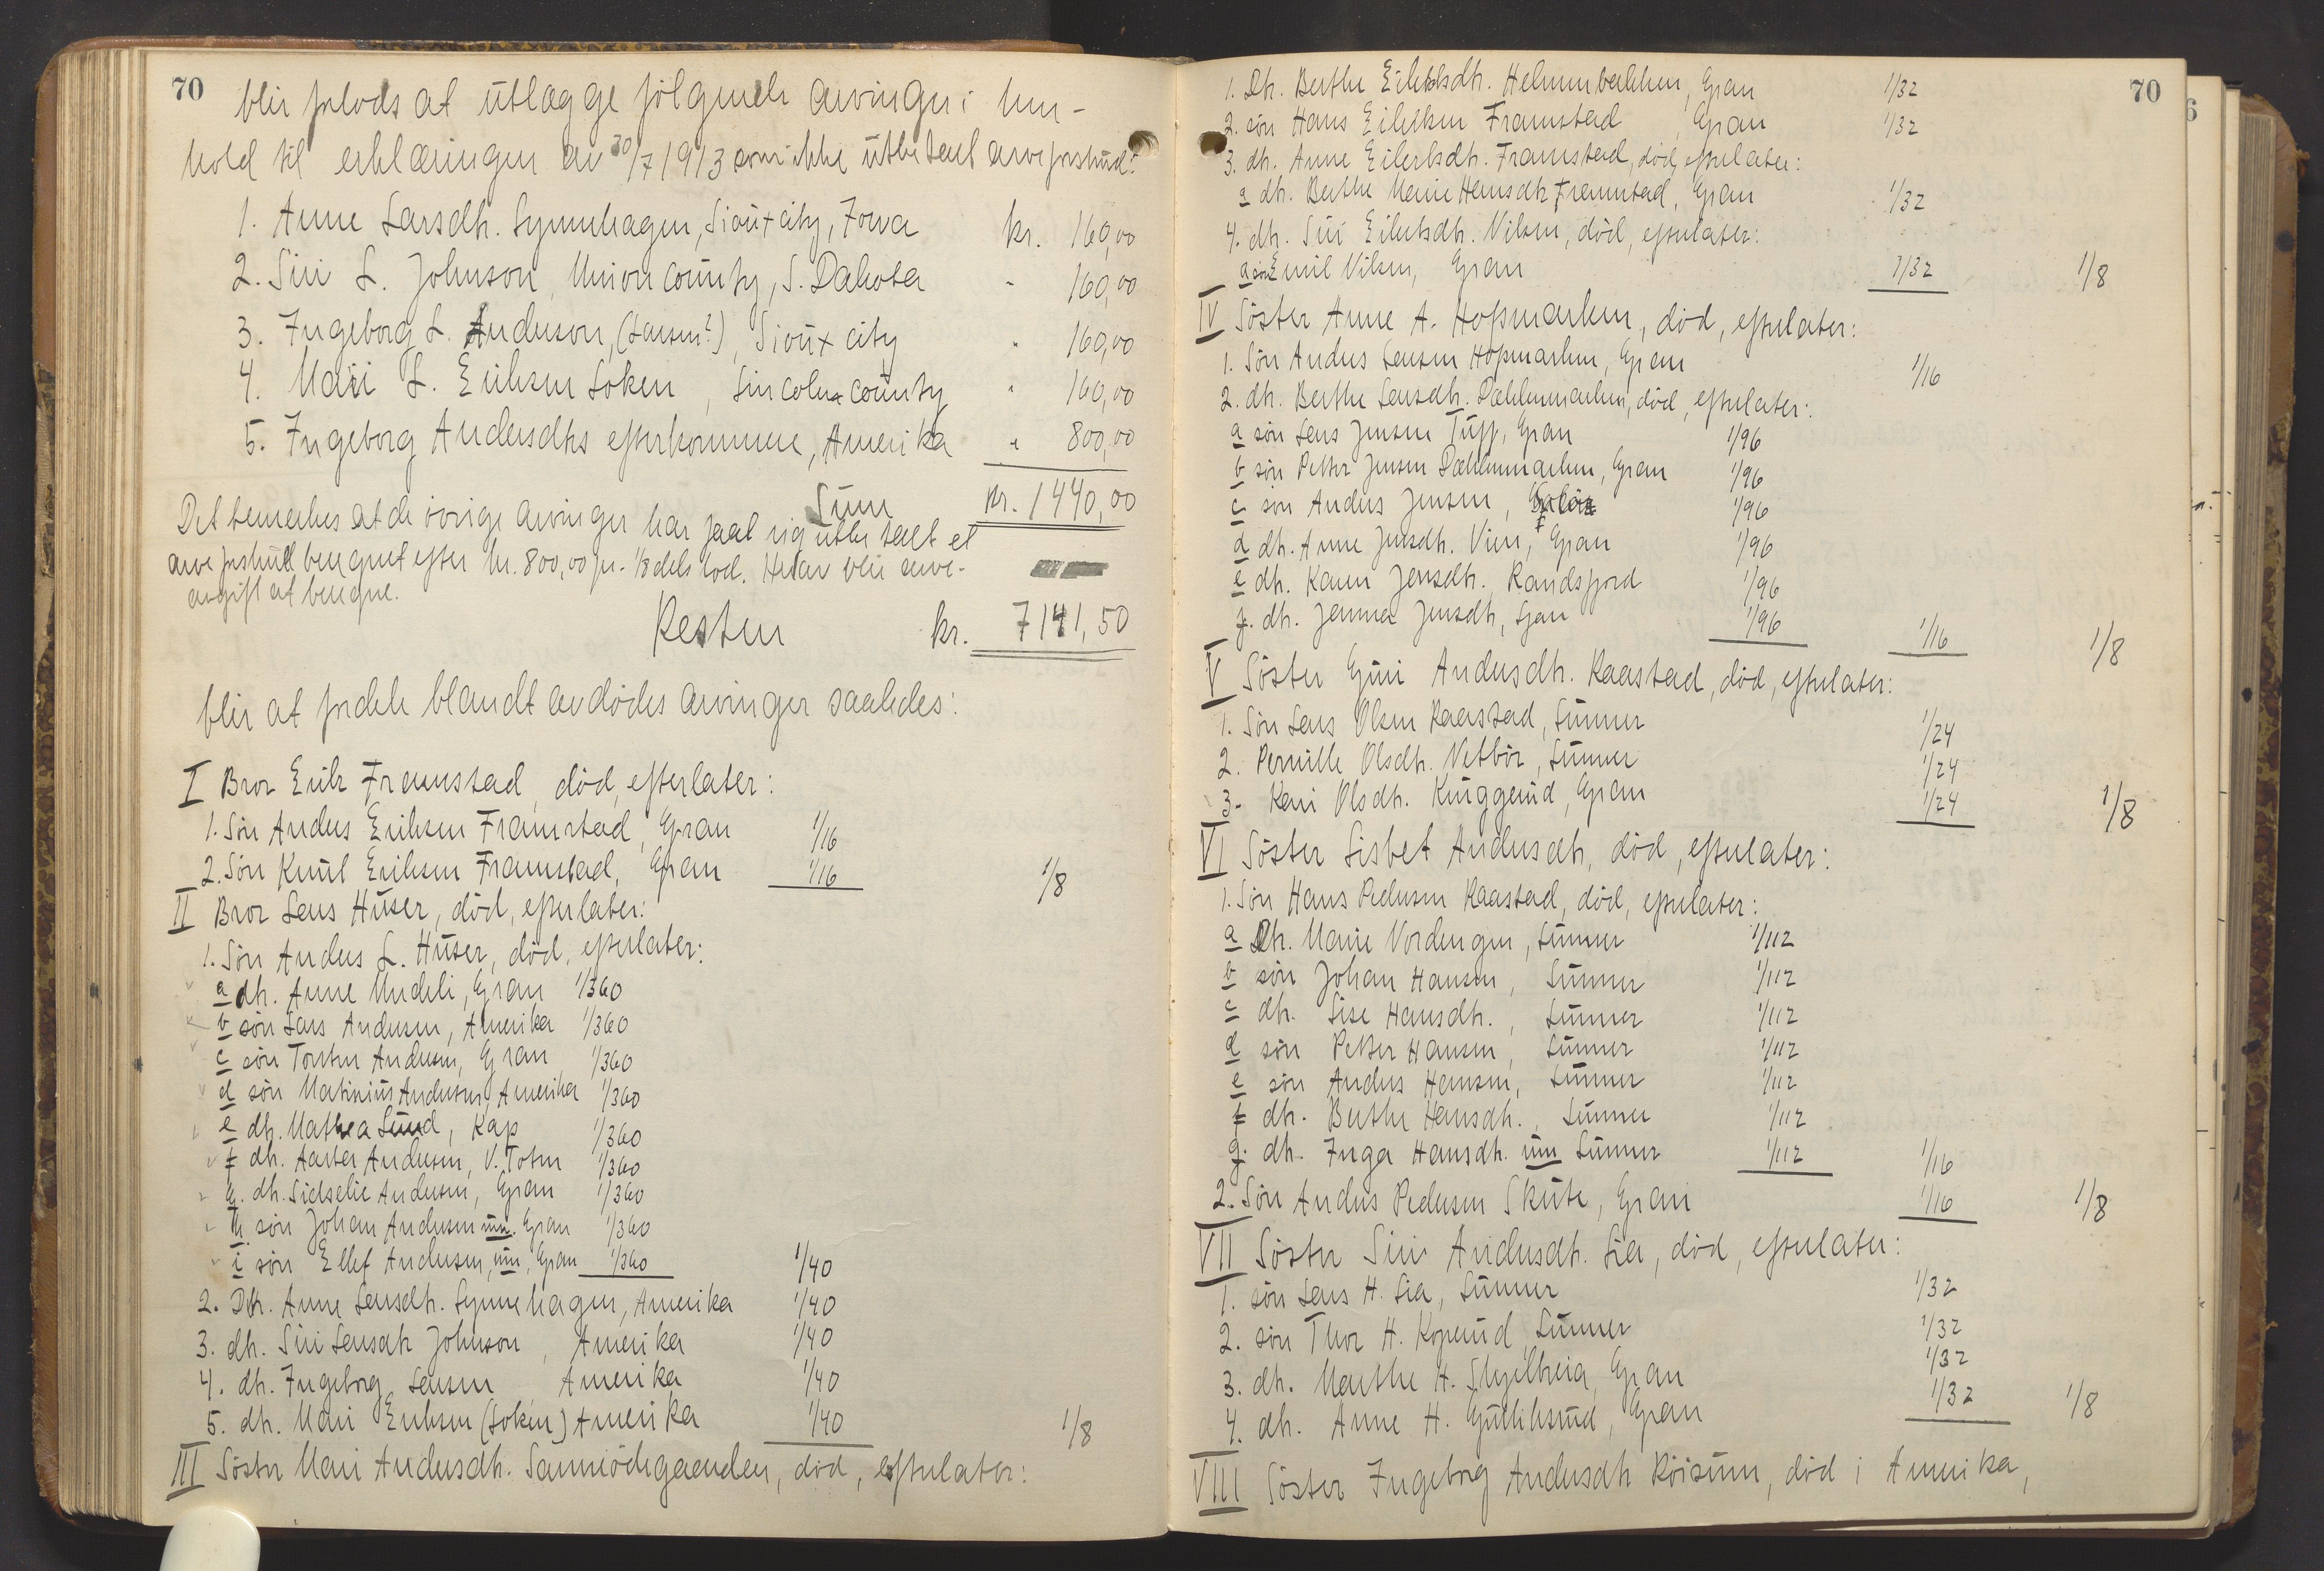 70
blir forlods at utlægge følgende arvinger i hen-
hold til erklæringen av 30/7 1913 som ikke utbetalt arveforskud:
1. Anne Larsdtr. Synnehagen, Sioux city, Iowa kr. 160,00
2. Siri L. Johnson, Union county, S. Dakota " 160,00
3. Ingeborg L. Anderson, (Larsen?), Sioux city " 160,00
4. Mari L. Eriksen Loken, Lincoln county " 160,00
5. Ingeborg Andersdtrs efterkommere, Amerika " 800,00
Sum kr. 1440,00
Det bemerkes at de øvrige arvinger har faat sig utbetalt et
arveforskud beregnet efter kr. 800,00 pr. 1/8 dels lod. Herav blir arve-
avgift at beregne.
Resten kr. 7141,50
blir at fordele blandt avdødes arvinger saaledes:
I Bror Erik Framstad, død, efterlater:
1. Søn Anders Eriksen Framstad, Gran 1/16
2. Søn Knut Eriksen Framstad, Gran 1/16 1/8
II Bror Lars Huser, død, efterlater:
1. Søn Anders L. Huser, død, efterlater:
a dtr. Anne Undeli, Gran 1/360
b søn Lars Andersen, Amerika 1/360
c søn Torsten Andersen, Gran 1/360
d søn Martinius Andersen, Amerika 1/360
e dtr. Mathea Lund, Kap 1/360
f dtr. Aaste Andersen, V. Toten 1/360
g. dtr. Sidselie Andersen, Gran 1/360
h søn Johan Andersen um. Gran 1/360
i søn Ellef Andersen, um, Gran 1/360 1/40
2. Dtr. Anne Larsdtr. Synnehagen, Amerika 1/40
3. dtr. Siri Larsdtr Johnson, Amerika 1/40
4. dtr. Ingeborg Larsen, Amerika 1/40
5. dtr. Mari Eriksen (Loken) Amerika 1/40 1/8
III Søster Mari Andersdtr. Sannrødegaarden, død, efterlater:
70
1. Dtr. Berthe Eilertsdtr. Helmenbakken, Gran 1/32
2. søn Hans Eilertsen Framstad, Gran 1/32
3. dtr. Anne Eilertsdtr. Framstad, død, efterlater:
a dtr. Berthe Marie Hansdtr Framstad, Gran 1/32
4. dtr. Siri Eilertsdtr. Nilsen, død, efterlater:
a søn Emil Nilsen, Gran 1/32 1/8
IV Søster Anne A. Hofsmarken, død, efterlater:
1. Søn Anders Larsen Hofsmarken, Gran 1/16
2. dtr. Berthe Larsdtr. Dæhlenmarken, død, efterlater:
a søn Lars Jensen Tuff, Gran 1/96
b søn Petter Jensen Dæhlenmarken, Gran 1/96
c søn Anders Jensen, 1/96
d dtr. Anne Jensdtr. Vien, Gran 1/96
e dtr. Karen Jensdtr. Randsfjord 1/96
f. dtr. Jenna Jensdtr, Gran 1/96 1/16 1/8
V Søster Guri Andersdtr. Raastad, død, efterlater:
1. Søn Lars Olsen Raastad, Lunner 1/24
2. Pernille Olsdtr. Vetbør, Lunner 1/24
3. Kari Olsdtr. Kurggerud, Gran 1/24 1/8
VI Søster Lisbet Andersdtr, død, efterlater:
1. Søn Hans Pedersen Raastad, død, efterlater:
a Dtr. Marie Vordengen, Lunner 1/112
b søn Johan Hansen, Lunner 1/112
c dtr. Lise Hansdtr., Lunner 1/112
d søn Petter Hansen, Lunner 1/112
e søn Anders Hansen, Lunner 1/112
f dtr. Berthe Hansdtr., Lunner 1/112
g. dtr. Inga Hansdtr. um Lunner 1/112 1/16
2. Søn Anders Pedersen Skute, Gran 1/16 1/8
VII Søster Siri Andersdtr. Lia, død, efterlater:
1. søn Lars H. Lia, Lunner 1/32
2. søn Thor H. Koperud, Lunner 1/32
3. dtr. Marthe H. Skjelbreia, Gran 1/32
4. dtr. Anne H. Gulliksrud, Gran 1/32 1/8
VIII Søster Ingeborg Andersdtr Røisum, død i Amerika,